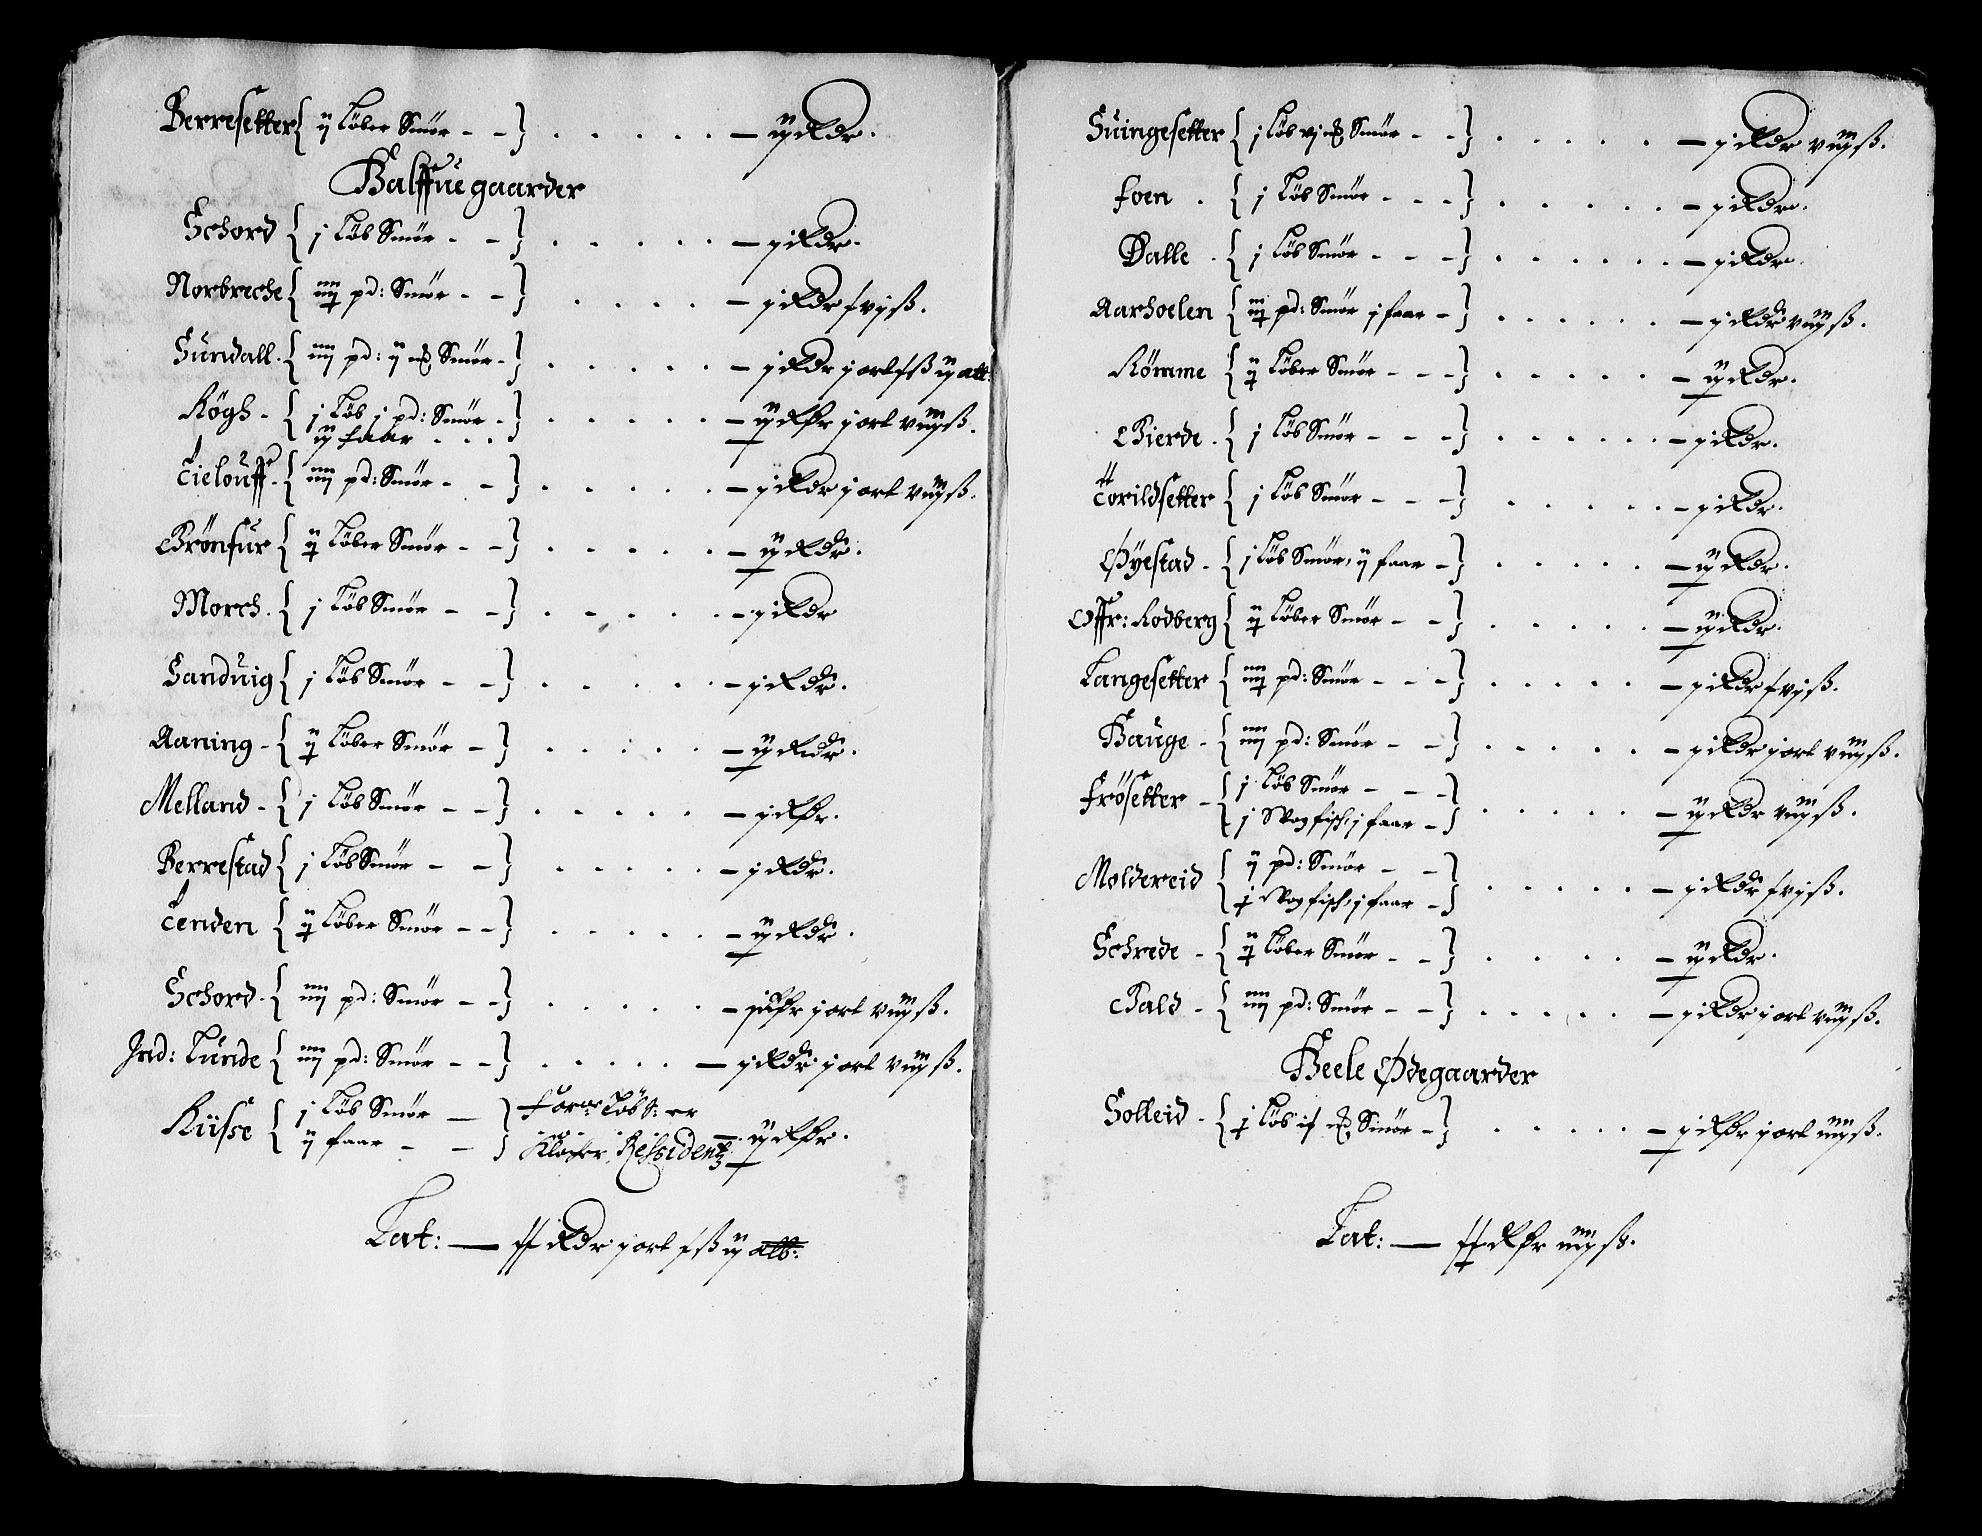 Berresetter { ij Løber Smør - - } . . . . . — ij Rdr.
Halffue gaarder
Schord { j Løb Smør - - } . . . . . — j Rdr.
Norbreche { iiij pd: Smør - - } . . . . — j Rdr
Sundall . { iiij pd: ij Smør - } . . . . . — j Rdr j ort ß ij alb:
Høgh - { j Løb j pd: Smør -
ij faar - - - } . . . . . — ij Rdr j ort viij ß.
Tielouff . { iiij pd: Smør - - } . . . . . — j Rdr j ort viij ß.
Brønsur { ij Løber Smør - - } . . . . . — ij Rdr.
Morch . { j Løb Smør - - } . . . . . — j Rdr
Sanduig { j Løb Smør - - } . . . . . — j Rdr.
Aaning - { ij Løber Smør - } . . . . . — ij Rdr.
Melland - { j Løb Smør - - } . . . . . — j Rdr.
Berrestad { j Løb Smør - - } . . . . . — j Rdr.
Tenden { ij Løber Smør - - } . . . . . — ij Rdr.
Schord . { iiij pd: Smør - - } . . . . . — j Rdr j ort viij ß.
Ind: Lunde { iiij pd: Smør - - } . . . . . — j Rdr j ort viij ß.
Husse { j Løb Smør — } Løb S: er
ij faar - - } Kloster Residentz — ij Rdr.
Lat: — Rdr j ort ß ij alb:
Suingesetter { j Løb vj Smør - - } . . . . . — j Rdr viij ß.
Foen . { j Løb Smør - - - } . . . . . — j Rdr.
Dalle . { j Løb Smør - - - } . . . . . . — j Rdr.
Aarhoelen { iij pd: Smør j faar - } . . . . . — j Rdr viij ß.
Rømme { ij Løber Smør - - - } . . . . . — ij Rdr.
Bierde . { j Løb Smør - - - } . . . . . . — j Rdr.
Torildsetter { j Løb Smør - - - } . . . . . — j Rdr.
Øyestad - { j Løb Smør, ij faar - } . . . . . — ij Rdr.
Offr: Rodberg { ij Løber Smør - - } . . . . . — ij Rdr.
Langesetter { iiij pd: Smør - - - } . . . . . — j Rdr
Hauge - { iiij pd: Smør - - } . . . . . — j Rdr j ort viij ß.
Frøsetter - { j Løb Smør - - -
j Wog fisch, j faar - } . . . . . — ij Rdr viij ß.
Moldereid { ij pd: Smør - -
j Wog fisch, j faar - } . . . . . — j Rdr
Schrede - { ij Løber Smør - - } . . . . — ij Rdr.
Bald - { iiij pd: Smør - - } . . . . . — j Rdr j ort viij ß.
Heele Ødegaarder
Solleid - { j Løb Smør - } . . . . . — j Rdr j ort iiij ß.
Lat: — Rdr iiij ß.